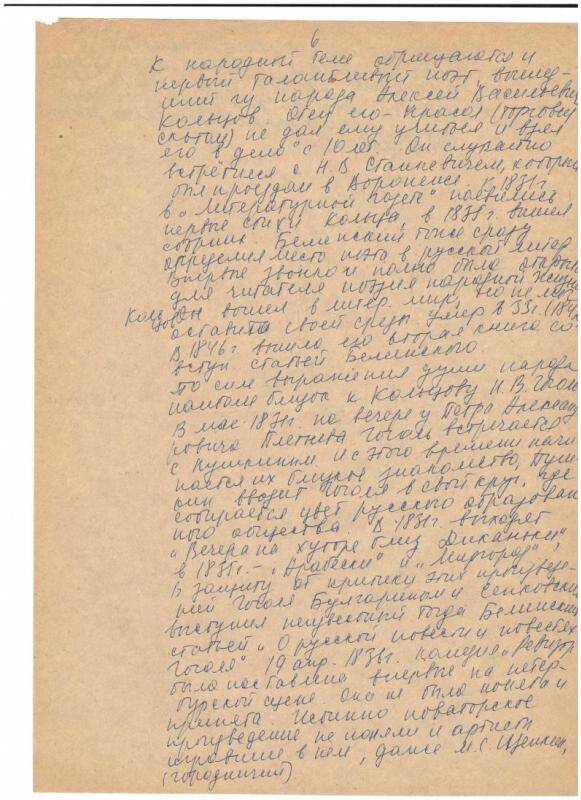 6
К народной теме обращается и
первый талантливый поэт, вышед-
ший из народа Алексей Васильевич
Кольцов. Отец его - прасол (торговец
скотом) не дал ему учиться и взял
его в дело с 10 лет. Он случайно
встретился с Н.В. Станкевичем, который
был проездом в Воронеже. В 1831г.
в "Литературной газете" появились
первые стихи Кольцова, в 1835г. вышел
сборник. Белинский тогда сразу
определил место поэта в русской литер.
Впервые звонко и полно была открыта
для читателя поэзия народной жизни
Кольцов Он вошел в литер. мир, но не мог
оставить своей среды умер в 33г. (1842
В 1846г вышла его вторая книга со
вступ. статьей Белинского.
По силе выражения души народа
наиболее близок к Кольцову Н.В. Гоголь
В мае 1831г. на вечере у Петра Александ
ровича Плетнева Гоголь встречается
с Пушкиным и с этого времени начи
нается их близкое знакомство, Пуш-
кин вводит Гоголя в свой круг, где
собирается цвет русского образован
ного общества. В 1831г. выходят
"Вечера на хуторе близ Диканьки",
в 1835г. - "Арабески" и "Миргород",
В защиту от критики этих произведе-
ний Гоголя Булгариным и Сенковским
выступил неизвестный тогда Белинский
статьей "О русской повести и повестях
Гоголя" 19 апр. 1836г. комедия "Ревизор
была поставлена впервые на петер-
бургской сцене. Она не была понята и
принята. Истинно новаторское
произведение не поняли и артисты
игравшие в нем, даже М.С. Щепкин,
(городничий).